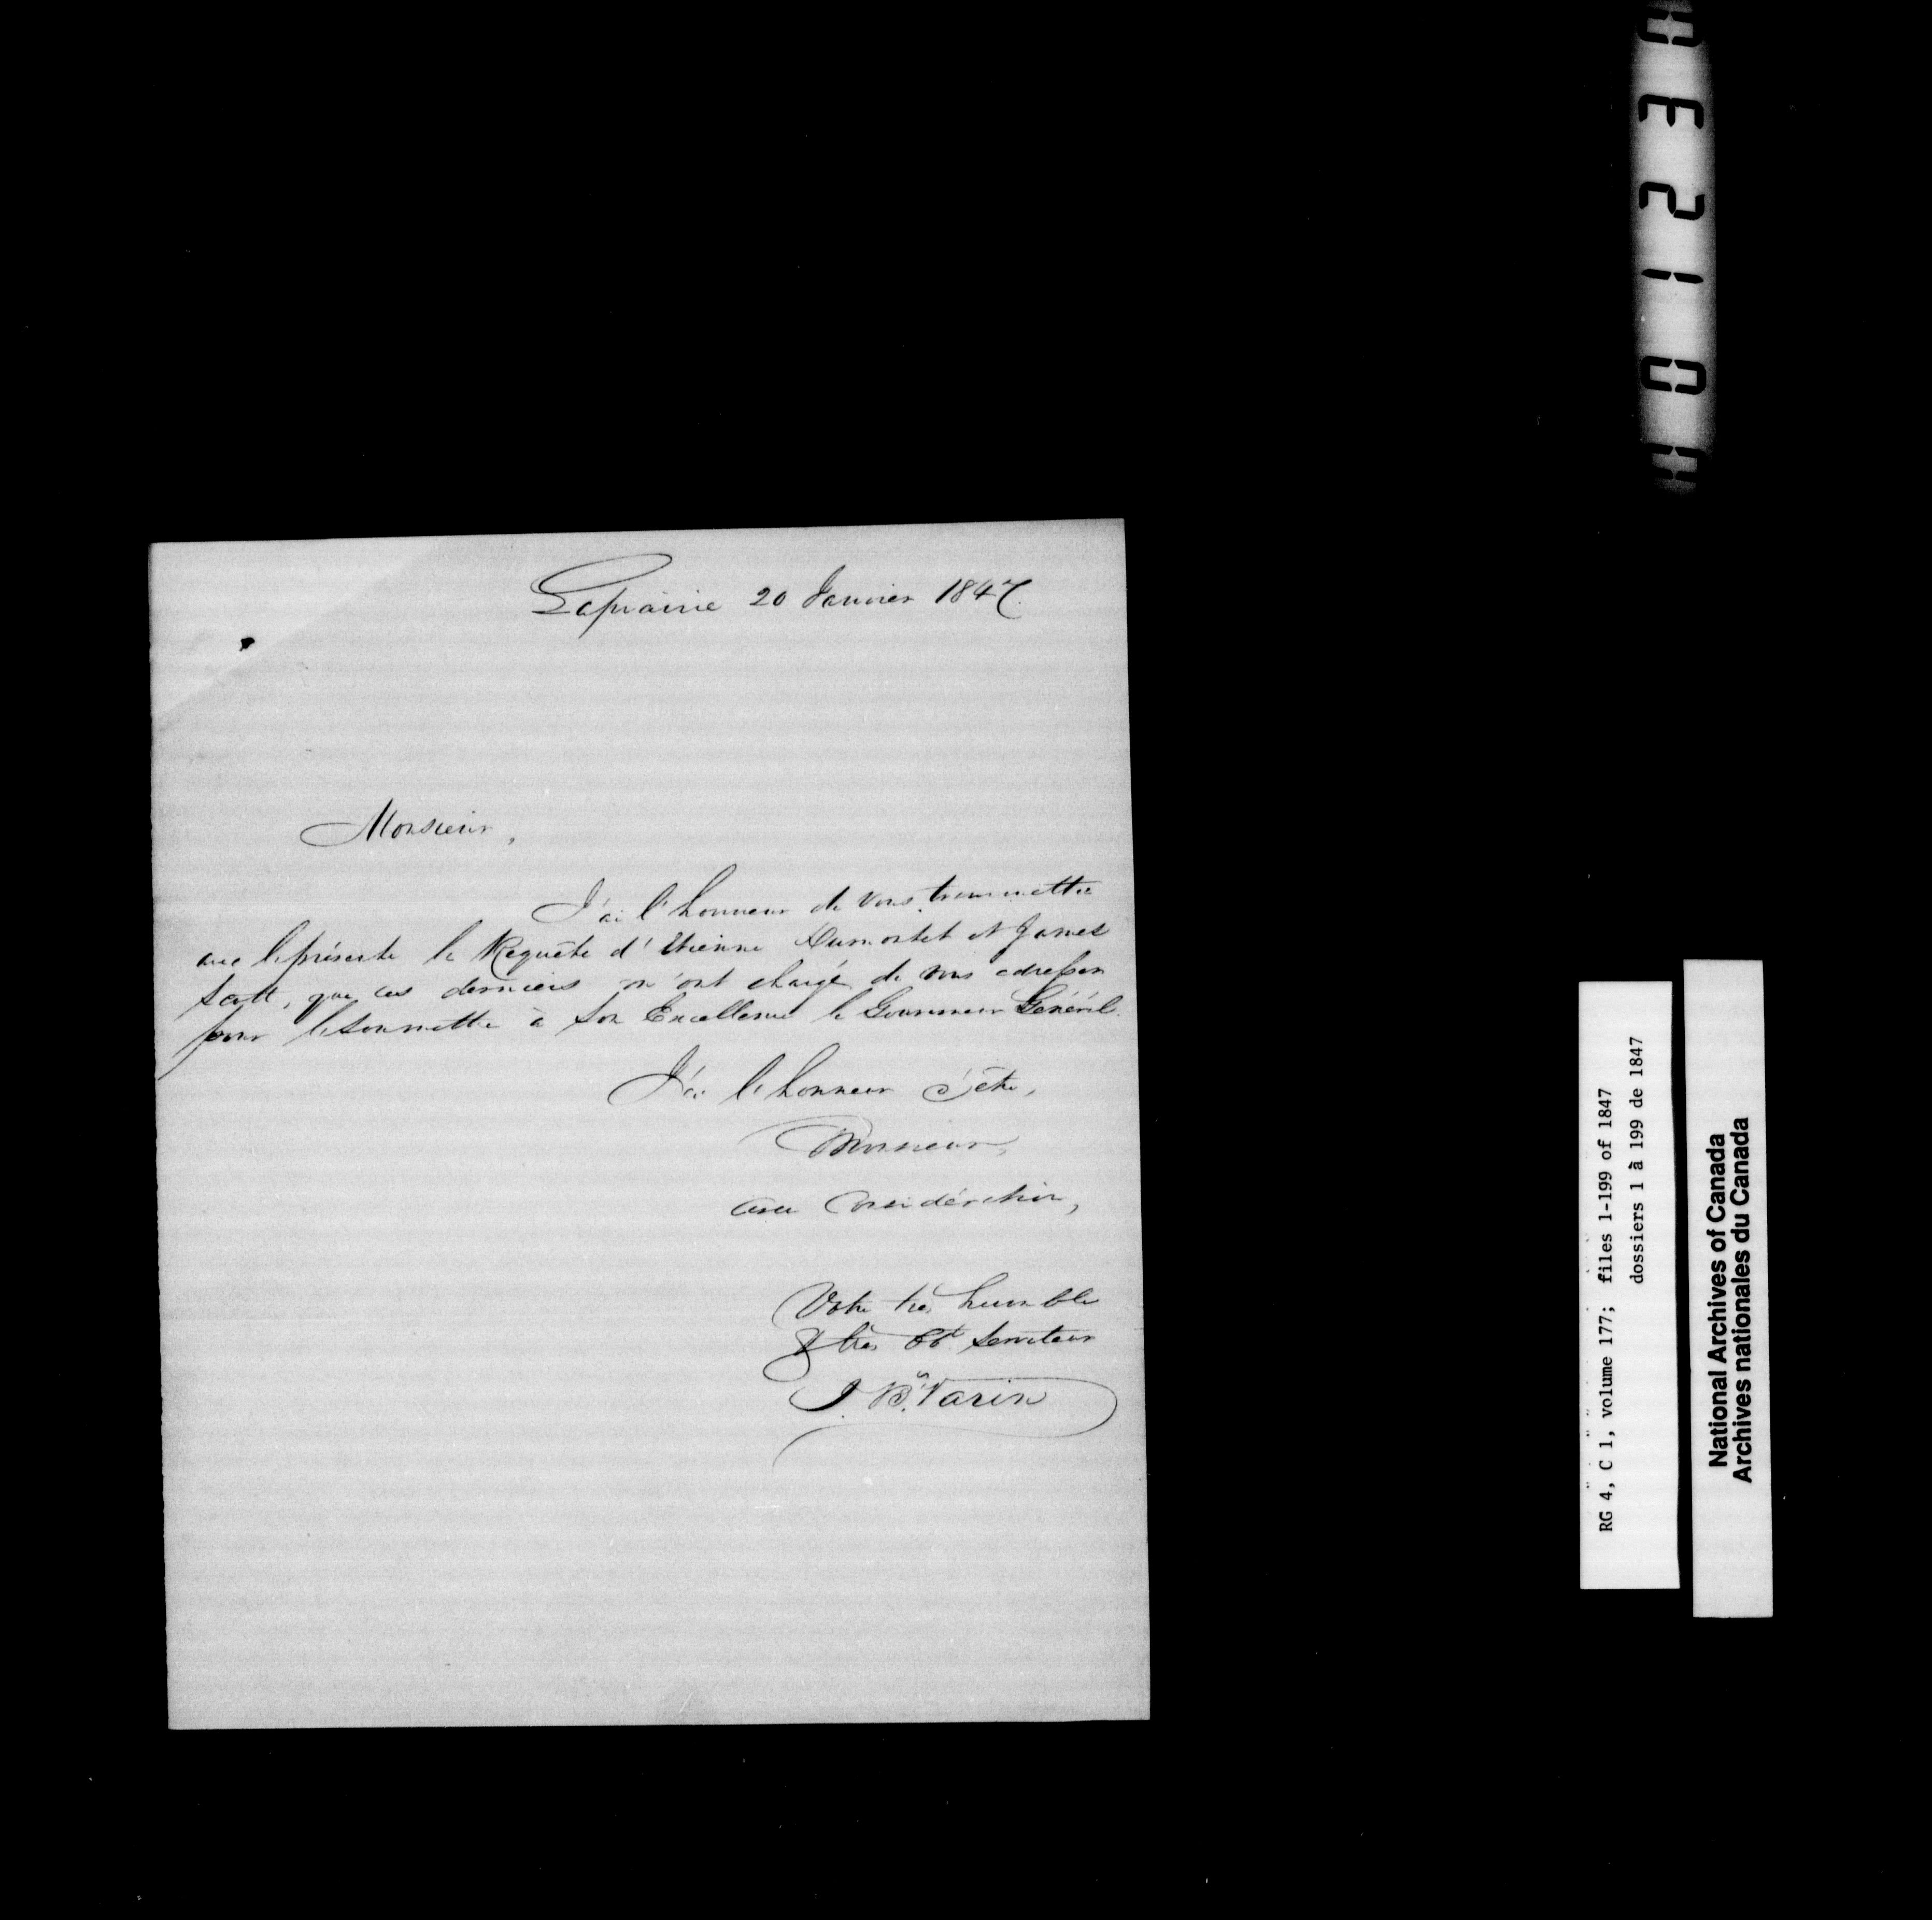 Laprairie 20 Janvier 1847.
Monsieur,
J'ai l'honneur de vous transmettre
avec la présente la Requête d'Etienne Dumontet et James
Scott, que ces derniers m'ont chargé de vous adresser
pour la soumettre à Son Excellence le Gouverneur Général.
J'ai l'honneur d'être,
Monsieur,
avec Considération,
Votre très humble
& très Obt Serviteur
J. Bte Varin
RG 4, C 1, volume 177; files 1-199 of 1847
dossiers 1 à 199 de 1847
National Archives of Canada
Archives nationales du Canada